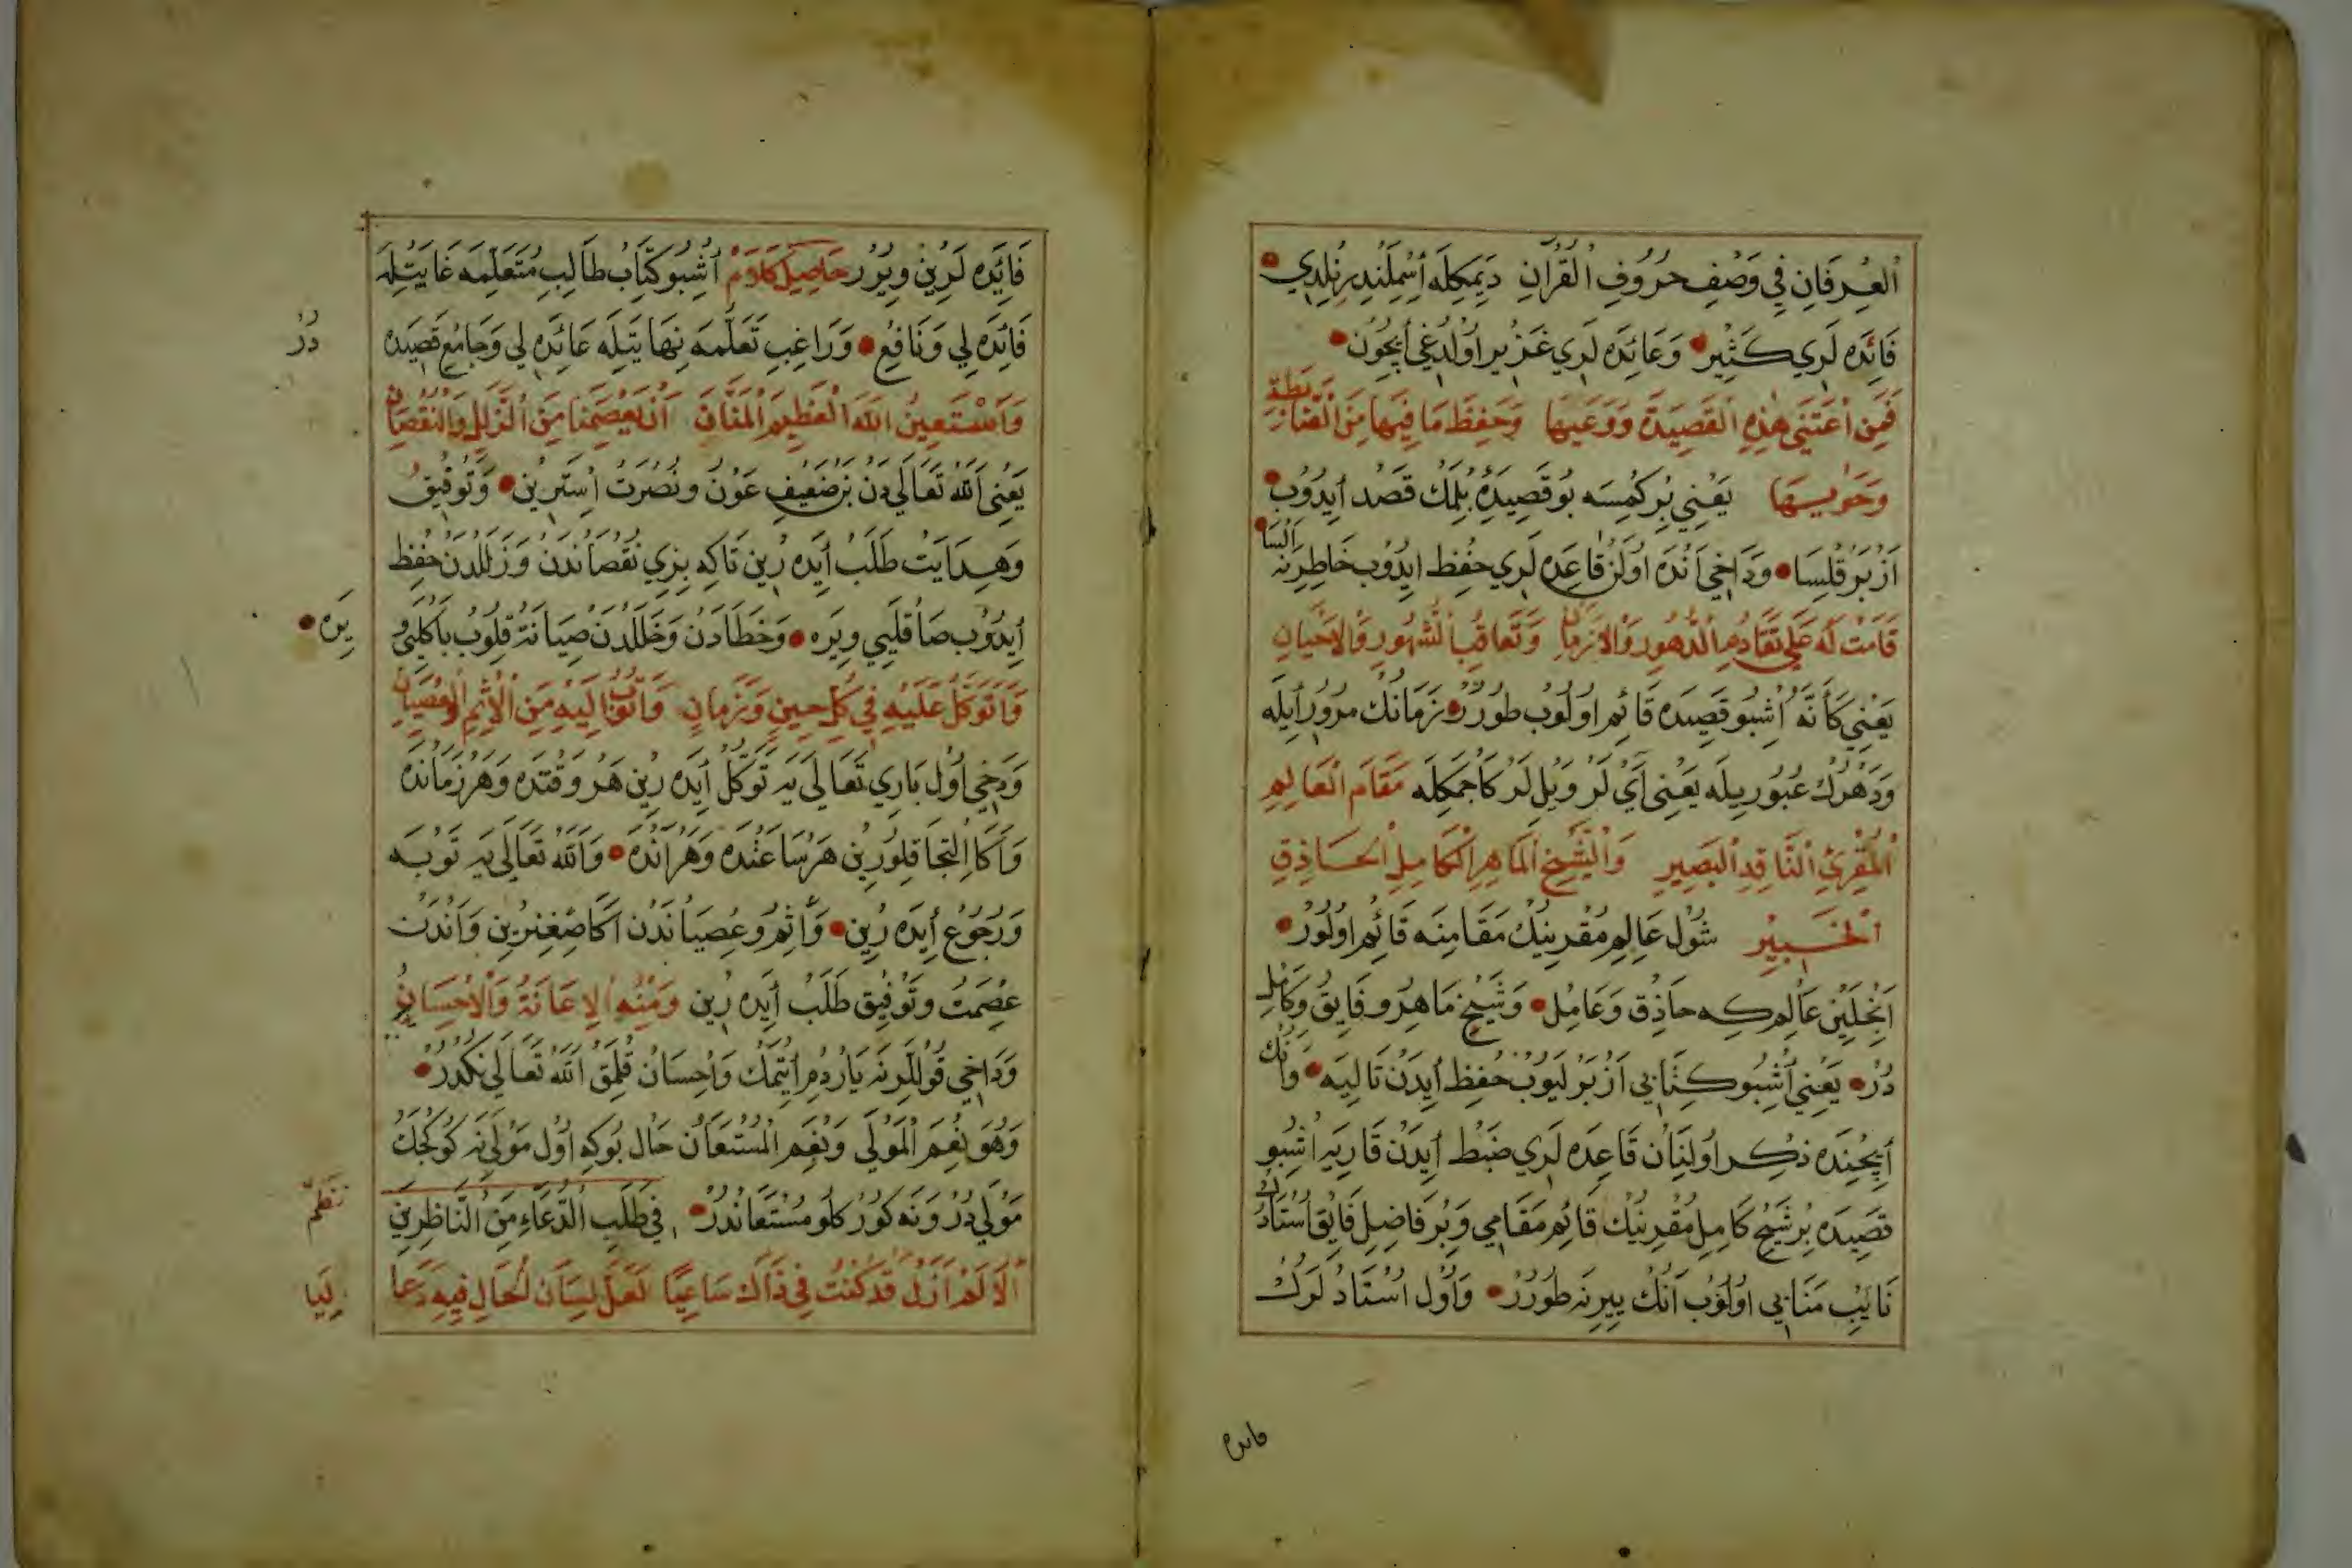 اَلْعِرْفَانِ فِي وَصْفِ حُرُوفِ الْقُرْآنِ دَيَمكِلَه اِسْمِلَنْدِرِنُلِدِي
فَائِدَه لَرِي كَثِيرْ وَعَائِدَه لَرِي غَزِيرْ اُولْدُغِي اِيچُونْ
فَمَنِ اعْتَنَى هٰذِهِ الْقَصِيدَةَ وَوَعَيهَا وَحَفِظَ مَا فِيهَا مِنَ
وَحَوٰيهَا يَعْنِي بِرْ كِمْسَه بُو قَصِيدَۀ بِلْمَكْ قَصْد اِيدُوبْ
اَزْبَرْ قِلْسَا وَدَاخِي اَنْدَه اُولَنْ قَاعِدَه لَرِي حِفِظ اِيدُوبْ خَاطِرِنَه السَا
قَامَتْ لَهُ عَلَى تَقَادُمِ الدُّهُورِ وَالْاَزْمَانِ وَتَعَاقُبِ الشُّهُورِ وَالْاَحْيَانِ
يَعْنِي كَأَنَّه اُشْبُو قَصِيدَه قَائِم اُولُوبْ طُورُرْ زَمَانُكْ مُرُورُ اَيْلَه
وَدَهْرُكْ عُبُورِيلَه يَعْنِي آيْ لَرْ وَيِلْ لَرْ كَاجْمَكِلَه مَقَامَ الْعَالِمِ
الْمُقْرِئِ النَّاقِدِ الْبَصِيرِ وَالشَّيْخِ الْمَاهِرِ الْكَامِلِ الْحَاذِقِ
الْخَبِيرِ شُولْ عَالِمِ مُقْرِينِكْ مَقَامِنَه قَائِم اُولُورْ
اَنْجِلَيِنْ عَالِم كِه حَاذِق وَعَامِلْ وَشَيْخِ مَاهِرُ وفَايِقُ وَكَامِل
دُرْ يَعْنِي اُشْبُو كِتَابِي اَزْبَرْلَيُوبْ حِفِظ اِيدَنْ تَالِيَه وَانُكْ
اِيچِنْدَه ذِكِر اُولِنَانْ قَاعِدَه لَرِي ضَبْط اِيدَنْ قَارِيَه اُشْبُو
قَصِيدَه بِرْ شَيْخِ كَامِلِ مُقْرِينِكْ قَائِم مَقَامِي وَبِرْ فَاضِلِ فَايِقْ اُسْتَادُكْ
نَايِبِ مَنَابِي اُولُوبْ اَنُكْ يِيرِنَه طُورُرْ وَاُولْ اُسْتَادْ لَرُكْ
فائده
فَائِدَه لَرِينْ وِيرُرْ حَاصِلِ كَلاَمْ اُشْبُو كِتَابْ طَالِبِ مُتَعَلِّمَه غَايَتِلَه
فَائِدَه لِي وَنَافِعْ وَرَاغِبِ تَعَلُّمَه نِهَايَتِلَه عَائِدَه لِي وَجَامِعِ قَصِيدَه
دُرْ
وَاَسْتَعِينُ اللهَ الْعَظِيمَ الْمَنَّانَ اَنْ يَعْصِمَنَا مِنَ الزَّلَلِ وَالنُّقْصَانِ
يَعْنِي اَللهُ تَعَالَى دَنْ بِزْ ضَعِيفِ عَوْنُ ونُصْرَتْ اِسْتَرِيِنْ وَتَوْفِيقُ
وَهِدَايَتْ طَلَبْ اَيْدَه رِينْ تَاكِه بِزِي نُقْصَانْدَنْ وَزَلَلْدَنْ حِفِظ
اِيدُوبْ صَاقْلَيِي وِيرَه وَخَطَادَنْ وَخَلَلْدَنْ صِيَانَةْ قِلُوبْ بَاكْلَيِي وِ
يرَه
وَاَتَوَكَّلُ عَلَيْهِ فِي كُلِّ حِينٍ وَزَمَانٍ وَاَتُوبُ اِلَيْهِ مِنَ الْاِثْمِ وَالْعِصْيَانِ
وَدَخِي اُولْ بَارِي تَعَالَى يَه تَوَكُّلْ اَيْدَه رِينْ هَرْ وَقْتَدَه وَهَرْ زَمَانْدَه
وَاَكَا اِلْتِجَا قِلُورِينْ هَرْ سَاعَتْدَه وَهَرْ اٰنْدَه وَاَللهُ تَعَالَى يَه تَوْبَه
وَرُجُوعْ اَيْدَه رِينْ وَاِثْمُ وعِصْيَانْدَنْ اَكَا صِغِنِرِينْ وَاَنْدَنْ
عِصْمَتُ وتَوْفِيقْ طَلَبْ اَيْدَه رِينْ وَمِنْهُ الْاِعَانَةُ وَالْاِحْسَانُ
وَدَاخِي قُولْلَرِنَه يَارْدُمْ اِيتْمَكْ وَاِحْسَانْ قِلْمَقْ اَللهُ تَعَالَى نِكْدُرْ
وَهُوَ نِعْمَ الْمَوْلَى وَنِعْمَ الْمُسْتَعَانْ حَالْ بُوكِه اُولْ مَوْلَى نَه كُوكْجَكْ
مَوْلَى دُرْ وَنَه كُورْكْلُو مُسْتَعَانْدُرْ فِي طَلَبِ الدُّعَاءِ مِنَ النَّاظِرِينَ
نَظْمٌ
اَلَا لَمْ اَزَلْ قَدْ كُنْتُ فِي ذَاكَ سَاعِيًا لَعَلَّ لِسَانَ الْحَالِ فِيهِ دَعَا
لِيَا